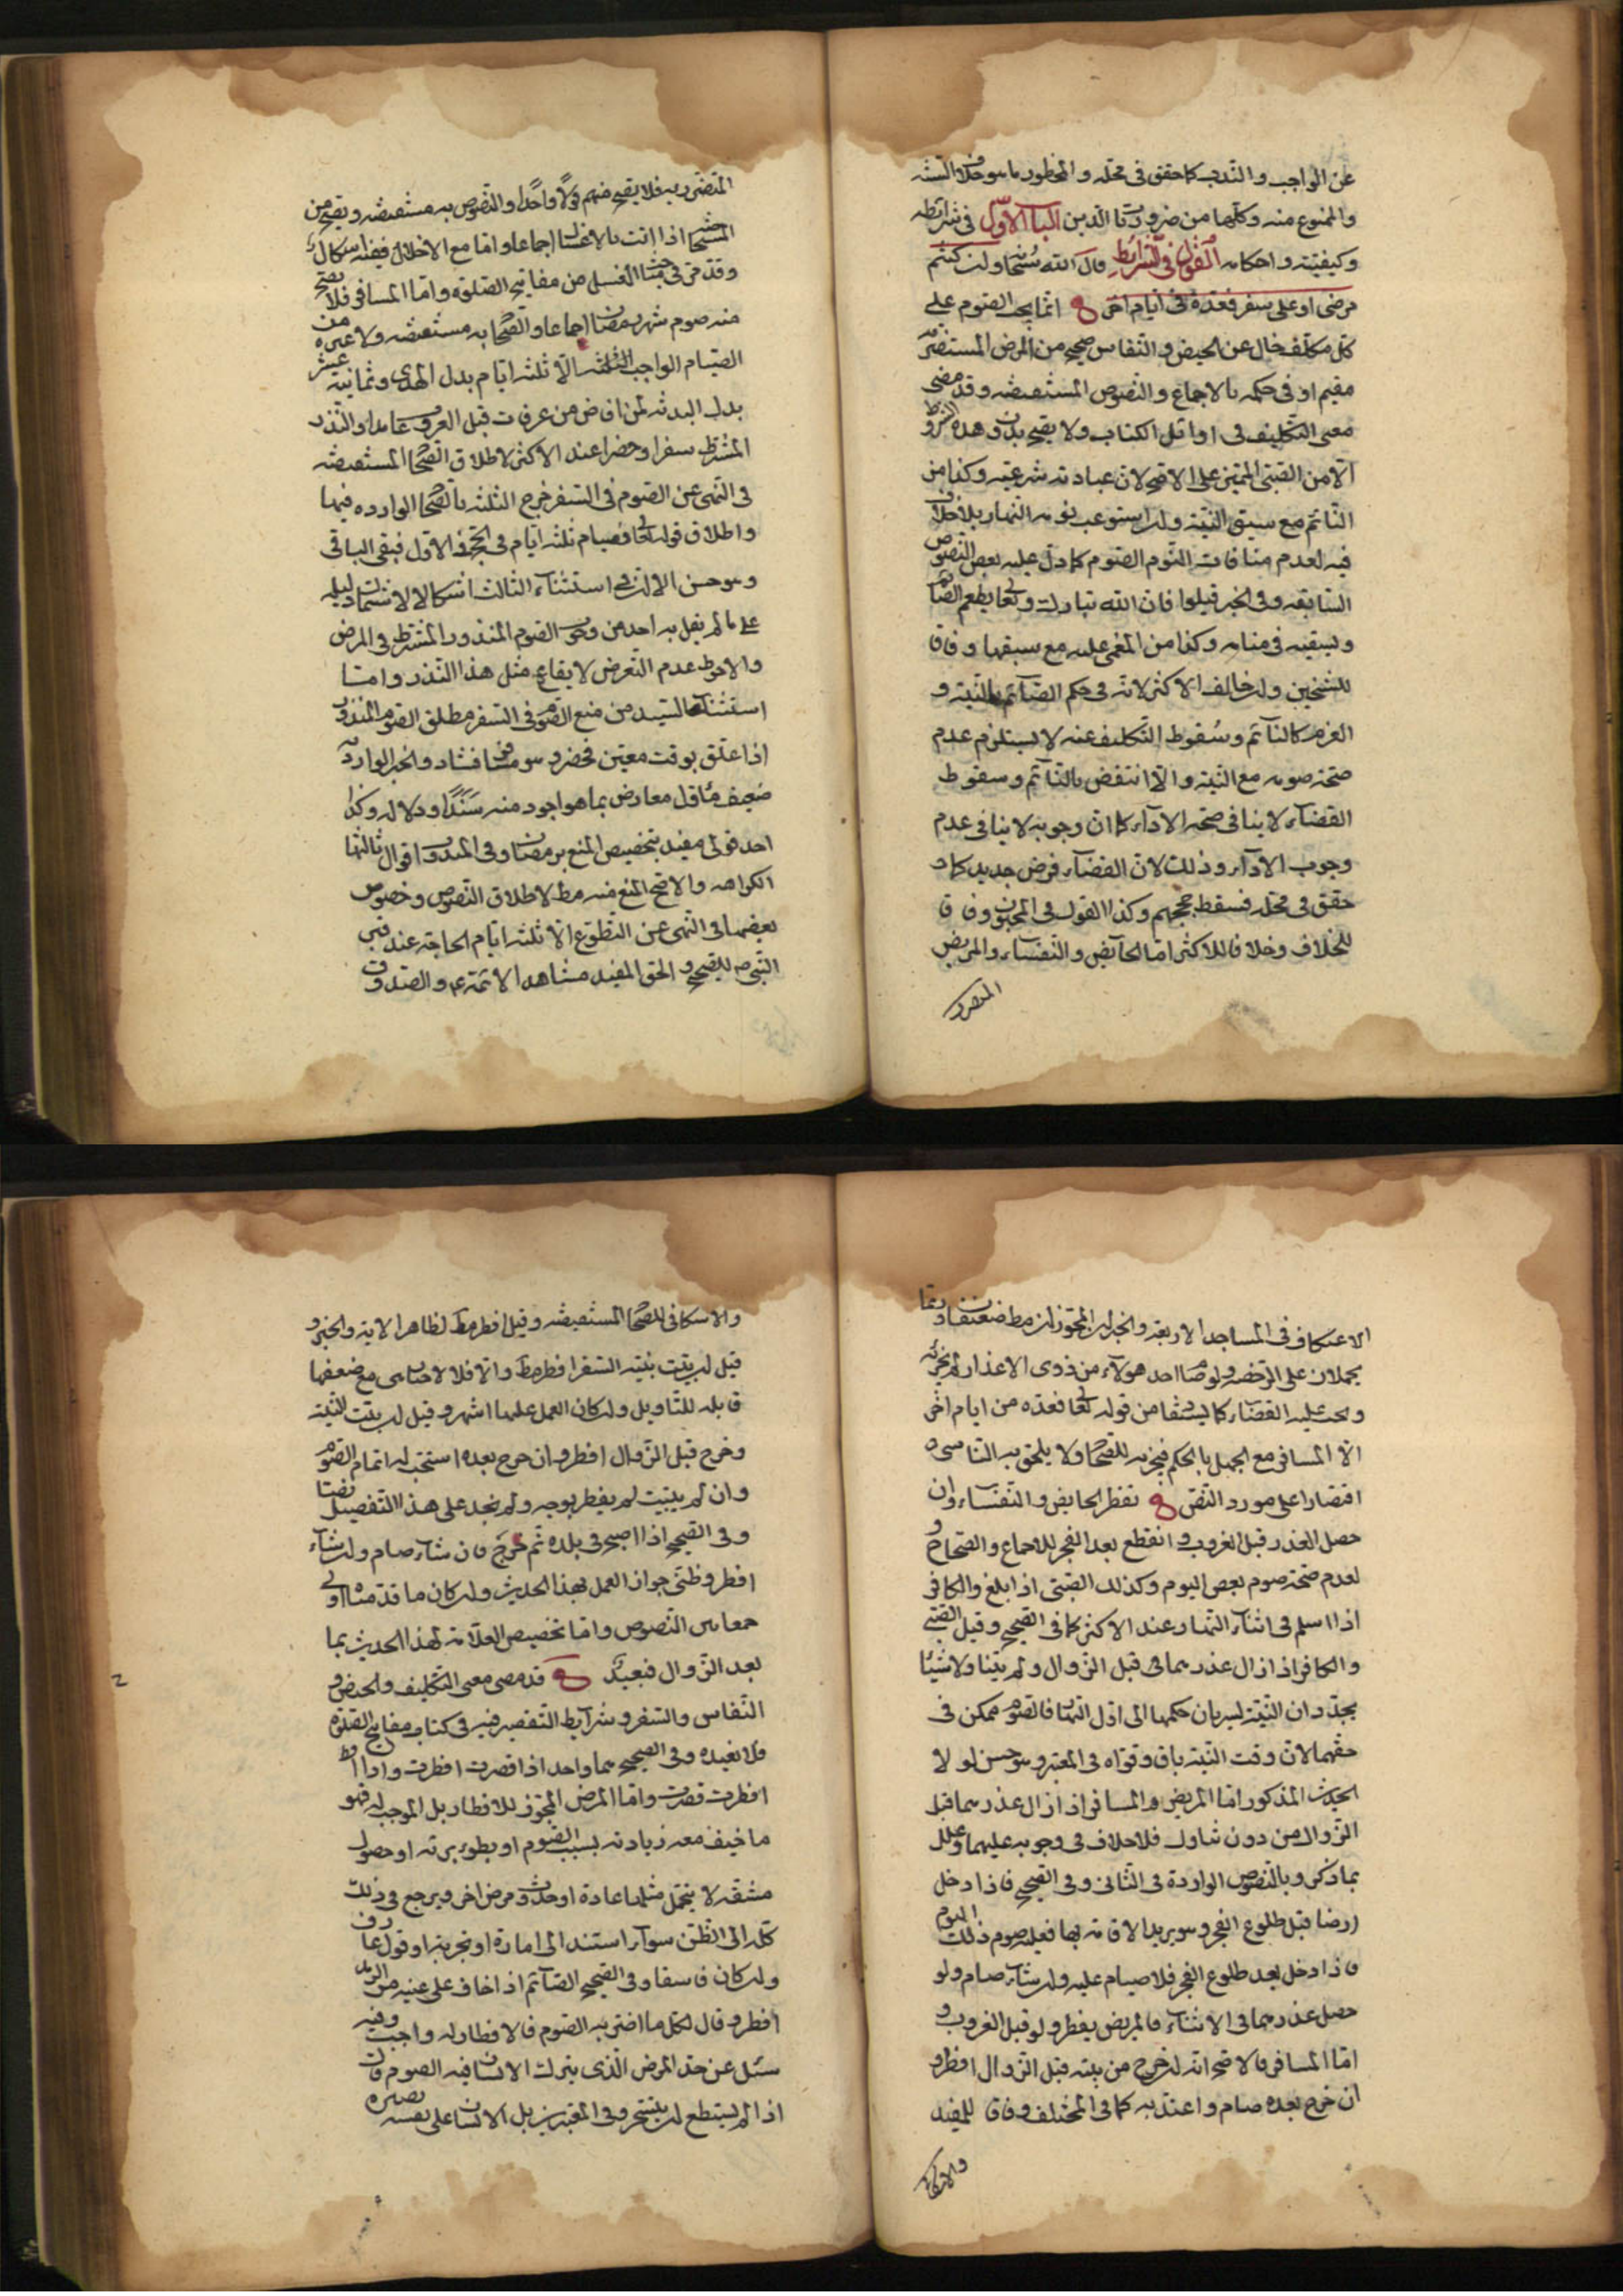 عن الواجب والندب كما حقق فى محله والمحظور ما هو خلاف السنة
والممنوع منه وكلها من ضروريات الدين الباب الاول فى شرائطه
وكيفيته واحكامه القول فى الشرائط قال الله سبحانه ولمن كنتم
مرضى او على سفر فعدة من ايام اخر انما يجب الصوم على
كل مكلف خال عن الحيض والنفاس صحيح من المرض المستضر
مقيم او فى حكمه بالاجماع والنصوص المستفيضه وقد مضى
معنى التكليف فى اوائل الكتاب ولا يصح بدون هذه الشروط
الا من الصبى المميز على الاصح لان عبادته شرعيه وكذا من
النائم مع سبق النية وان استوعب نومه النهار بلا خلاف
فيه لعدم منافات النوم الصوم كما دل عليه بعض النصوص
السابقه وفى الخبر قيلوا فان الله تبارك وتعالى يطعم الصائم
ويسقيه فى منامه وكذا من المغمى عليه مع سبقها وفاقا
للشيخين وان خالف الاكثر لانه فى حكم الصائم بالنية و
العزم كالنائم وسقوط التكليف عنه لا يستلزم عدم
صحة صومه مع النية والا انتقض بالنائم وسقوط
القضاء لا ينافى صحة الاداء كما ان وجوبه لا ينافى عدم
وجوب الاداء وذلك لان القضاء فرض جديد كما
حقق فى محله فسقط حججهم وكذا القول فى المجنون وفاقا
للخلاف وخلافا للاكثر اما الحائض والنفساء والمريض
المتضرر
المتضرر به فلا يصح منهم قولا واحدا والنصوص به مستفيضه ويصح من
المستحاضة اذا اتت بالاغسال اجماعا واما مع الاخلال ففيه اشكال
وقد مر فى مبحث الغسل من مفاتيح الصلوة واما المسافر فلا يصح
منه صوم شهر رمضان اجماعا والصحاح به مستفيضه ولا غيره من
الصيام الواجب الا ثلثه ايام بدل الهدى وثمانية عشر
بدل البدنه لمن افاض من عرفات قبل الغروب عامدا والنذر
المشترط سفرا وحضرا عند الاكثر لاطلاق الصحاح المستفيضه
فى النهى عن الصوم فى السفر خرج الثلثه بالصحاح الوارده فيها
واطلاق قوله تعالى فصيام ثلثه ايام فى الحج فى الاول فبقى الباقى
وهو حسن الا ان فى استثناء الثالث اشكالا لاشتمال دليله
على ما لم يقل به احد من وجوب الصوم المنذور المشترط فى المرض
والاحوط عدم التعرض لايقاع مثل هذا النذر واما
استثناء السيد من منع الصوم فى السفر مطلق الصوم المنذور
اذا علق بوقت معين فحضر وهو مسافر فشاذ والخبر الوارد به
ضعيف مأول معارض بما هو اجود منه سندا ودلاله وكذا
احد قولى مفيد بتخصيص المنع برمضان وفى المندوب اقوال ثالثها
الكراهه والاصح المنع منه مط لاطلاق النصوص وخصوص
بعضها فى النهى عن التطوع الا ثلثه ايام الحاجة عند قبر
النبى ص للصحيح والحق المفيد مشاهد الائمة ع والصدوق
الاعتكاف فى المساجد الاربعه والخبران المجوزان مط ضعيفان وربما
يحملان على الرخصه ولو صام احد هؤلاء من ذوى الاعذار لم يجزئه
ويجب عليه القضاء كما يستفاد من قوله تعالى فعدة من ايام اخر
الا المسافر مع الجهل بالحكم فيجزيه للصحاح ولا يلحق به الناسى
اقتصارا على مورد النص تفطر الحايض والنفساء وان
حصل العذر قبل الغروب او انقطع بعد الفجر للاجماع والصحاح و
لعدم صحة صوم بعض اليوم وكذلك الصبى اذا بلغ والكافر
اذا اسلم فى اثناء النهار عند الاكثر كما فى الصحيح وقيل الصبى
والكافر اذا زال عذرهما فى قبل الزوال ولم يتناولا شيئا
يجددان النية لسريان حكمها الى اول النهار فالصوم ممكن فى
حقهما لان وقت النية باق وقواه فى المعتبر وهو حسن لولا
الحديث المذكور اما المريض والمسافر اذا زال عذرهما قبل
الزوال من دون تناول فلا خلاف فى وجوبه عليهما وعلل
بما ذكر وبالنصوص الواردة فى الثانى وفى الصحيح فاذا دخل
ارضا قبل طلوع الفجر وهو يريد الاقامه بها فعليه صوم ذلك اليوم
فاذا دخل بعد طلوع الفجر فلا صيام عليه وان شاء صام ولو
حصل عذرهما فى الاثناء فالمريض يفطر ولو قبل الغروب و
اما المسافر فالاصح انه ان خرج من بيته قبل الزوال افطر و
ان خرج بعده صام واعتد به كما فى المختلف وفاقا للمفيد
والاسكافى
والاسكافى للصحاح المستفيضه وقيل افطر مط لظاهر الاية والخبر و
قيل ان بيت بنية السفر افطر مط والا فلا لاخبار هى مع ضعفها
قابله للتاويل وان كان العمل عليها اشهر وقيل ان بيت النية
وخرج قبل الزوال افطر وان خرج بعده استحب له اتمام الصوم
وان لم يبيت لم يفطر بوجه ولم نجد على هذا التفصيل نصا
وفى الصحيح اذا اصبح فى بلده ثم خرج فان شاء صام وان شاء
افطر وظنى جواز العمل بهذا الحديث وان كان ما قدمناه اولى
جمعا بين النصوص واما تخصيص العلامة لهذا الحديث بما
بعد الزوال فبعيد قد مضى معنى التكليف والحيض و
النفاس والسفر وشرايط التقصير فيه فى كتاب مفاتيح الصلوة
فلا نعيده وفى الصحيح هما واحد اذا قصرت افطرت واذا
افطرت قصرت واما المرض المجوز للافطار بل الموجب له فهو
ما خيف معه زيادته بسبب الصوم او بطوء برئه او حصول
مشقه لا يتحمل مثلها عادة او حدوث مرض اخر ويرجع فى ذلك
كله الى الظن سواء استند الى امارة او تجربة او قول عارف
وان كان فاسقا وفى الصحيح الصائم اذا خاف على عينيه من الرمد
افطر وقال كل ما اضر به الصوم فالافطار له واجب وفيه
سئل عن حد المرض الذى يترك الانسان فيه الصوم قال
اذا لم يستطع ان يتسحر وفى المعتبرين بل الانسان على نفسه بصيره